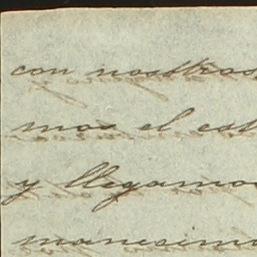 con nosotros
mos el est
y llegamos